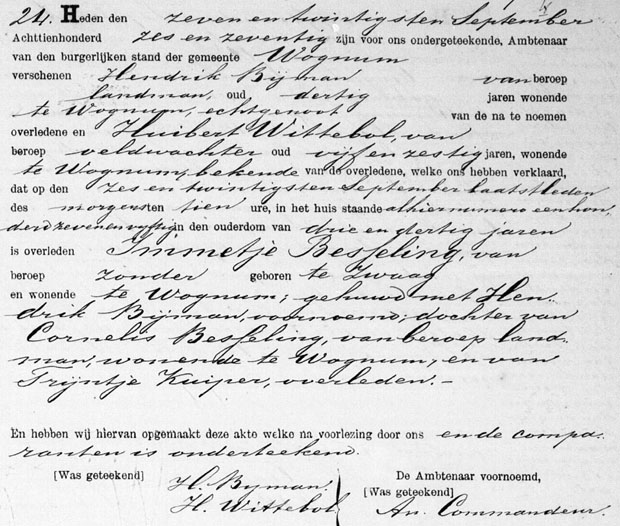 24. Heden den zeven en twintigsten September
Achttienhonderd zes en zeventig zijn voor ons ondergeteekende, Ambtenaar
van den burgerlijken stand der gemeente Wognum
verschenen Hendrik Bijman van beroep
landman, oud dertig jaren wonende
te Wognum, echtgenoot van de na te noemen
overledene en Huibert Wittebol, van
beroep veldwachter oud vijf en zestig jaren, wonende
te Wognum, bekende van de overledene, welke ons hebben verklaard,
dat op den zes en twintigsten September laatstleden
des morgens ten tien ure, in het huis staande alhier numero een hon,
derd zeven en vyftig in den ouderdom van drie en dertig jaren
is overleden Immetje Besseling, van
beroep zonder geboren te Zwaag
en wonende te Wognum; gehuwd met Hen-
drik Bijman, voornoemd; dochter van
Cornelis Besseling, van beroep land-
man, wonende te Wognum, en van
Trijntje Kuiper, overleden. –
En hebben wij hiervan opgemaakt deze akte welke na voorlezing door ons en de compa-
ranten is onderteekend.
[Was geteekend] H. Byman. De Ambtenaar voornoemd,
H. Wittebol [Was geteekend] An. Commandeur.